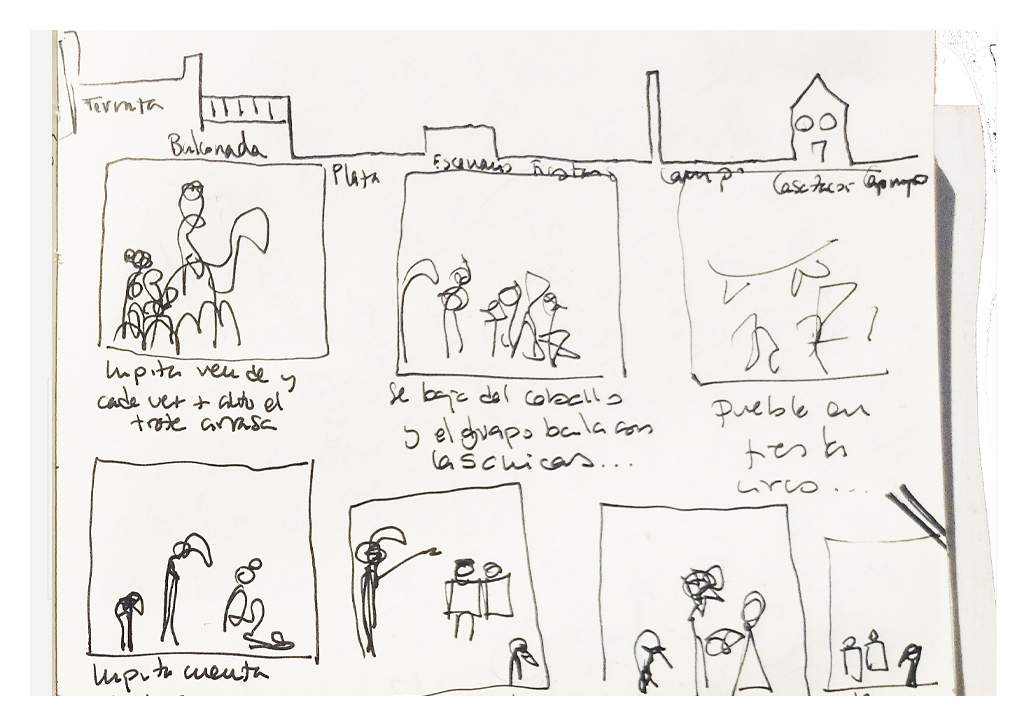 Terrata
Balconada
Plata
Escenario
Campo
Campo
Lupita vende y
cada vez + alto el
trote arrasa
Se baja del caballo
y el guapo baila con
las chicas...
pueble en
tres la
circo...
Lupita cuenta